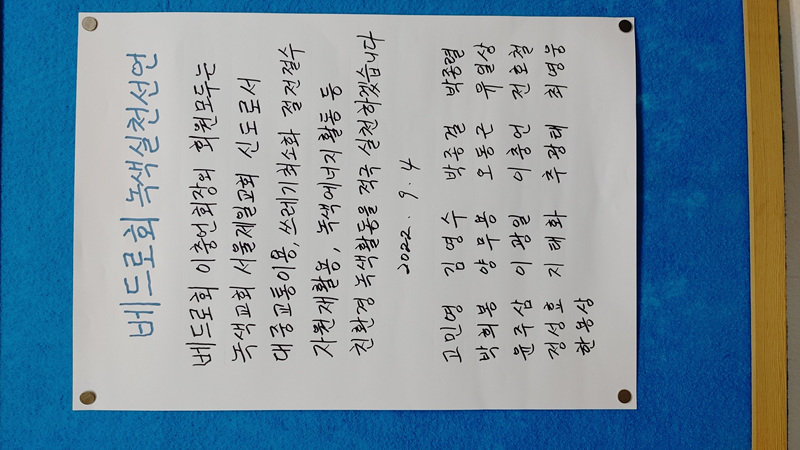 베드로회 녹색실천선언
베드로회 이충언회장외 회원모두는
녹색교회 서울제일교회 신도로서
대중교통이용, 쓰레기최소화 절전절수
자원재활용, 녹색에너지활동 등
친환경 녹색활동을 적극 실천하겠습니다
2022. 9. 4
고민영 김영수 박종걸 박종렬
박희몽 양무용 오동근 유일상
윤주삼 이광일 이충언 전호철
정성효 지태화 추광태 최영웅
한용상